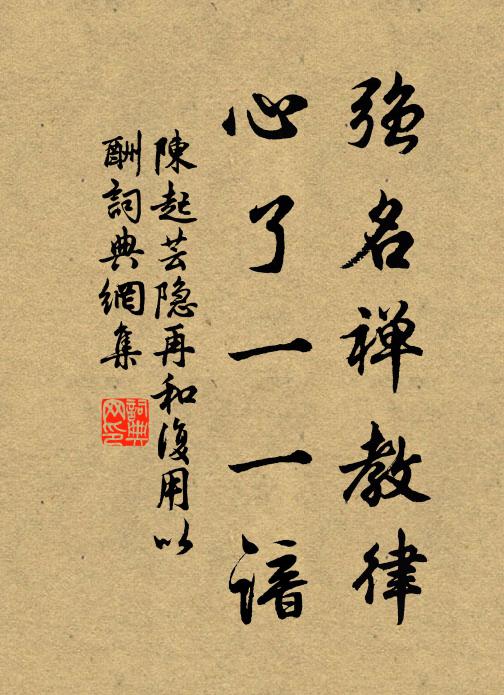 强名禅教律
心了一一谙
陳起芸隐再和復用以
酬詞典網集
詞典
网印